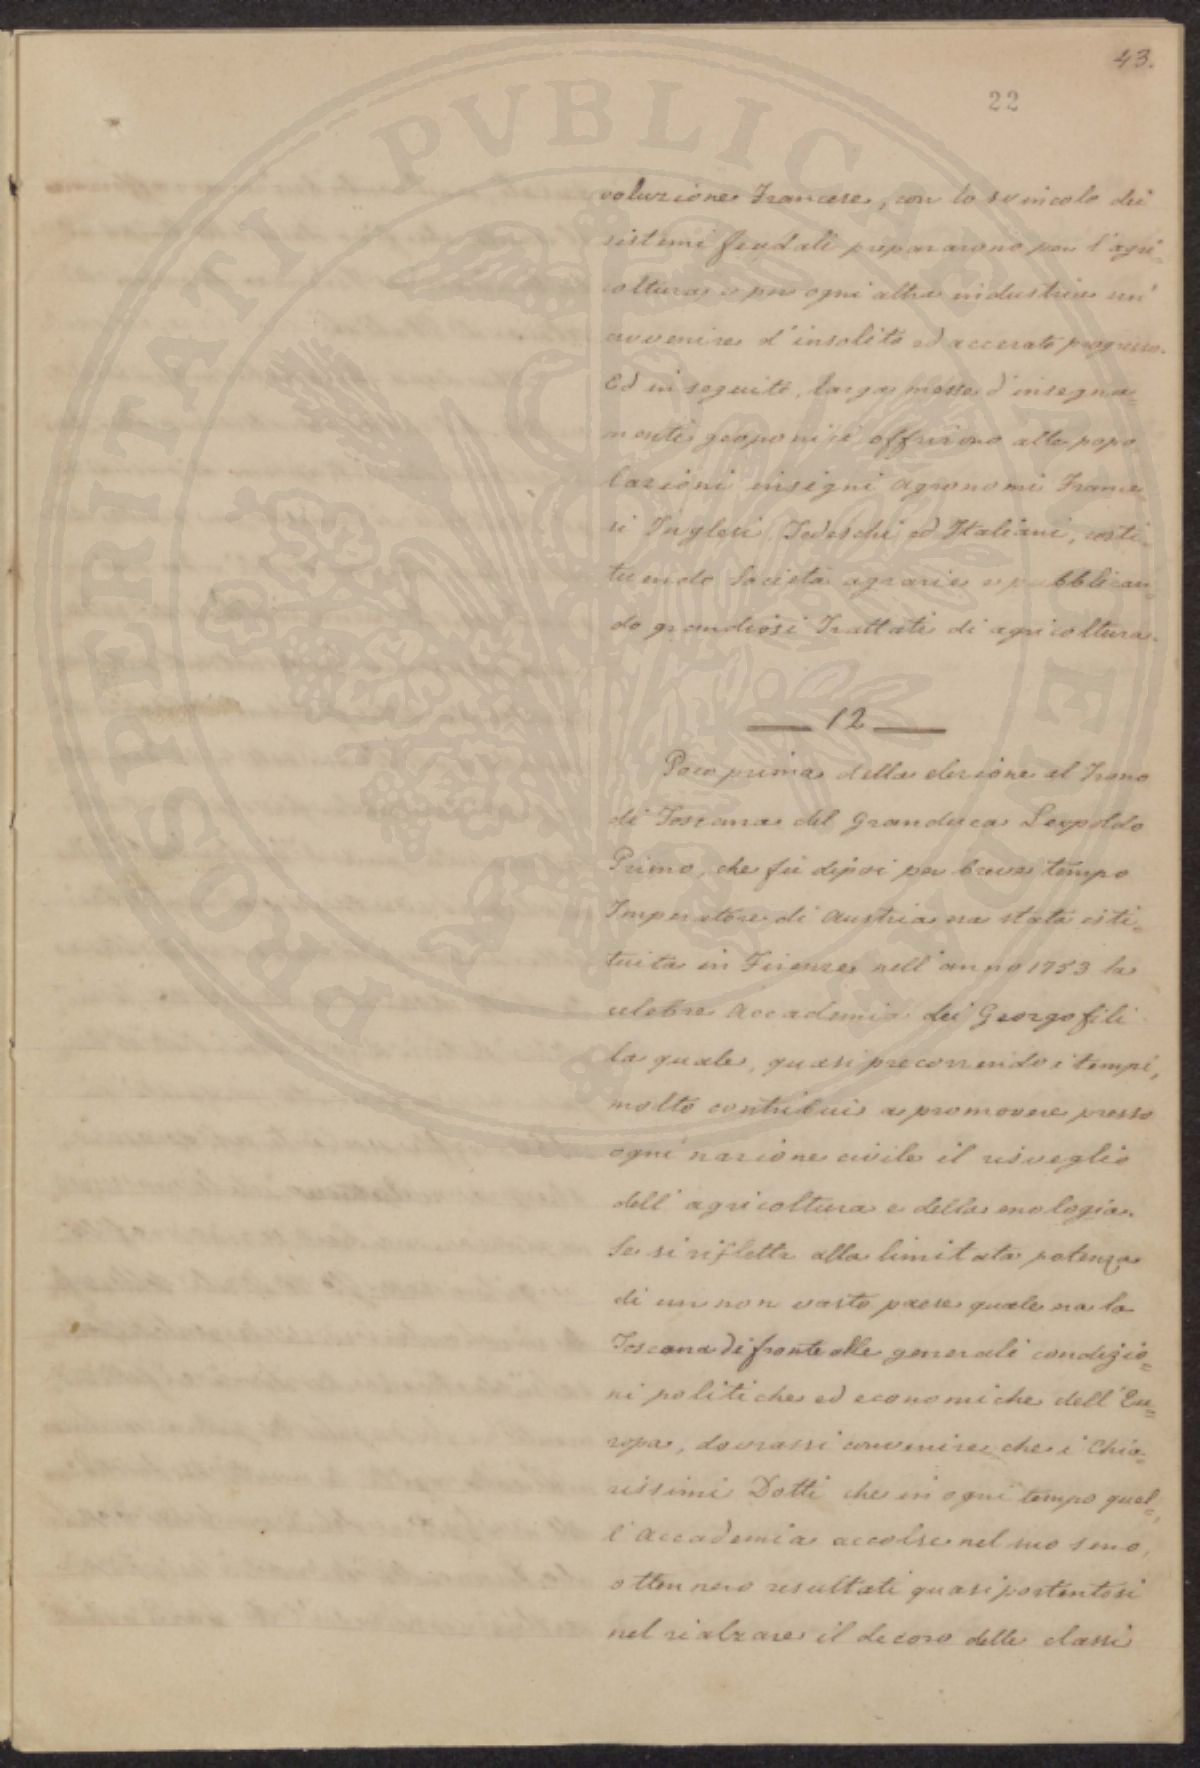 43.
22
PROSPERITATI PVBLICAE AVGENDAE
voluzione Francese, con lo svincolo dei
sistemi feudali prepararono per l'agri=
coltura e per ogni altra industria un'
avvenire d'insolito ed accerato progresso.
Ed in seguito, larga messe d'insegna=
menti geoponici offrirono alle popo
lazioni insigni agronomi France
si Inglesi Tedeschi ed Italiani, costi=
tuendo Società agrarie e pubblican=
do grandiosi Trattati di agricoltura.
12
Poco prima della elezione al Trono
di Toscana del Granduca Leopoldo
Primo, che fu dipoi per breve tempo
Imperatore di Austria era stata isti=
tuita in Firenze nell'anno 1753 la
celebre Accademia dei Georgofili
la quale, quasi precorrendo i tempi,
molto contribuì a promovere presso
ogni nazione civile il risveglio
dell'agricoltura e della enologia.
Se si riflette alla limitata potenza
di un non vasto paese quale era la
Toscana di fronte alle generali condizio=
ni politiche ed economiche dell'Eu=
ropa, dovrassi convenire che i Chia=
rissimi Dotti che in ogni tempo quel=
l'Accademia accolse nel suo seno,
ottennero resultati quasi portentosi
nel rialzare il decoro delle classi